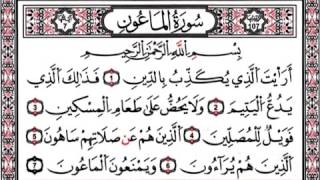 سُورَةُ المَاعُون
بِسْمِ اللَّهِ الرَّحْمَٰنِ الرَّحِيمِ
أَرَأَيْتَ الَّذِي يُكَذِّبُ بِالدِّينِ ١ فَذَٰلِكَ الَّذِي
يَدُعُّ الْيَتِيمَ ٢ وَلَا يَحُضُّ عَلَىٰ طَعَامِ الْمِسْكِينِ ٣
فَوَيْلٌ لِّلْمُصَلِّينَ ٤ الَّذِينَ هُمْ عَن صَلَاتِهِمْ سَاهُونَ ٥
الَّذِينَ هُمْ يُرَاءُونَ ٦ وَيَمْنَعُونَ الْمَاعُونَ ٧